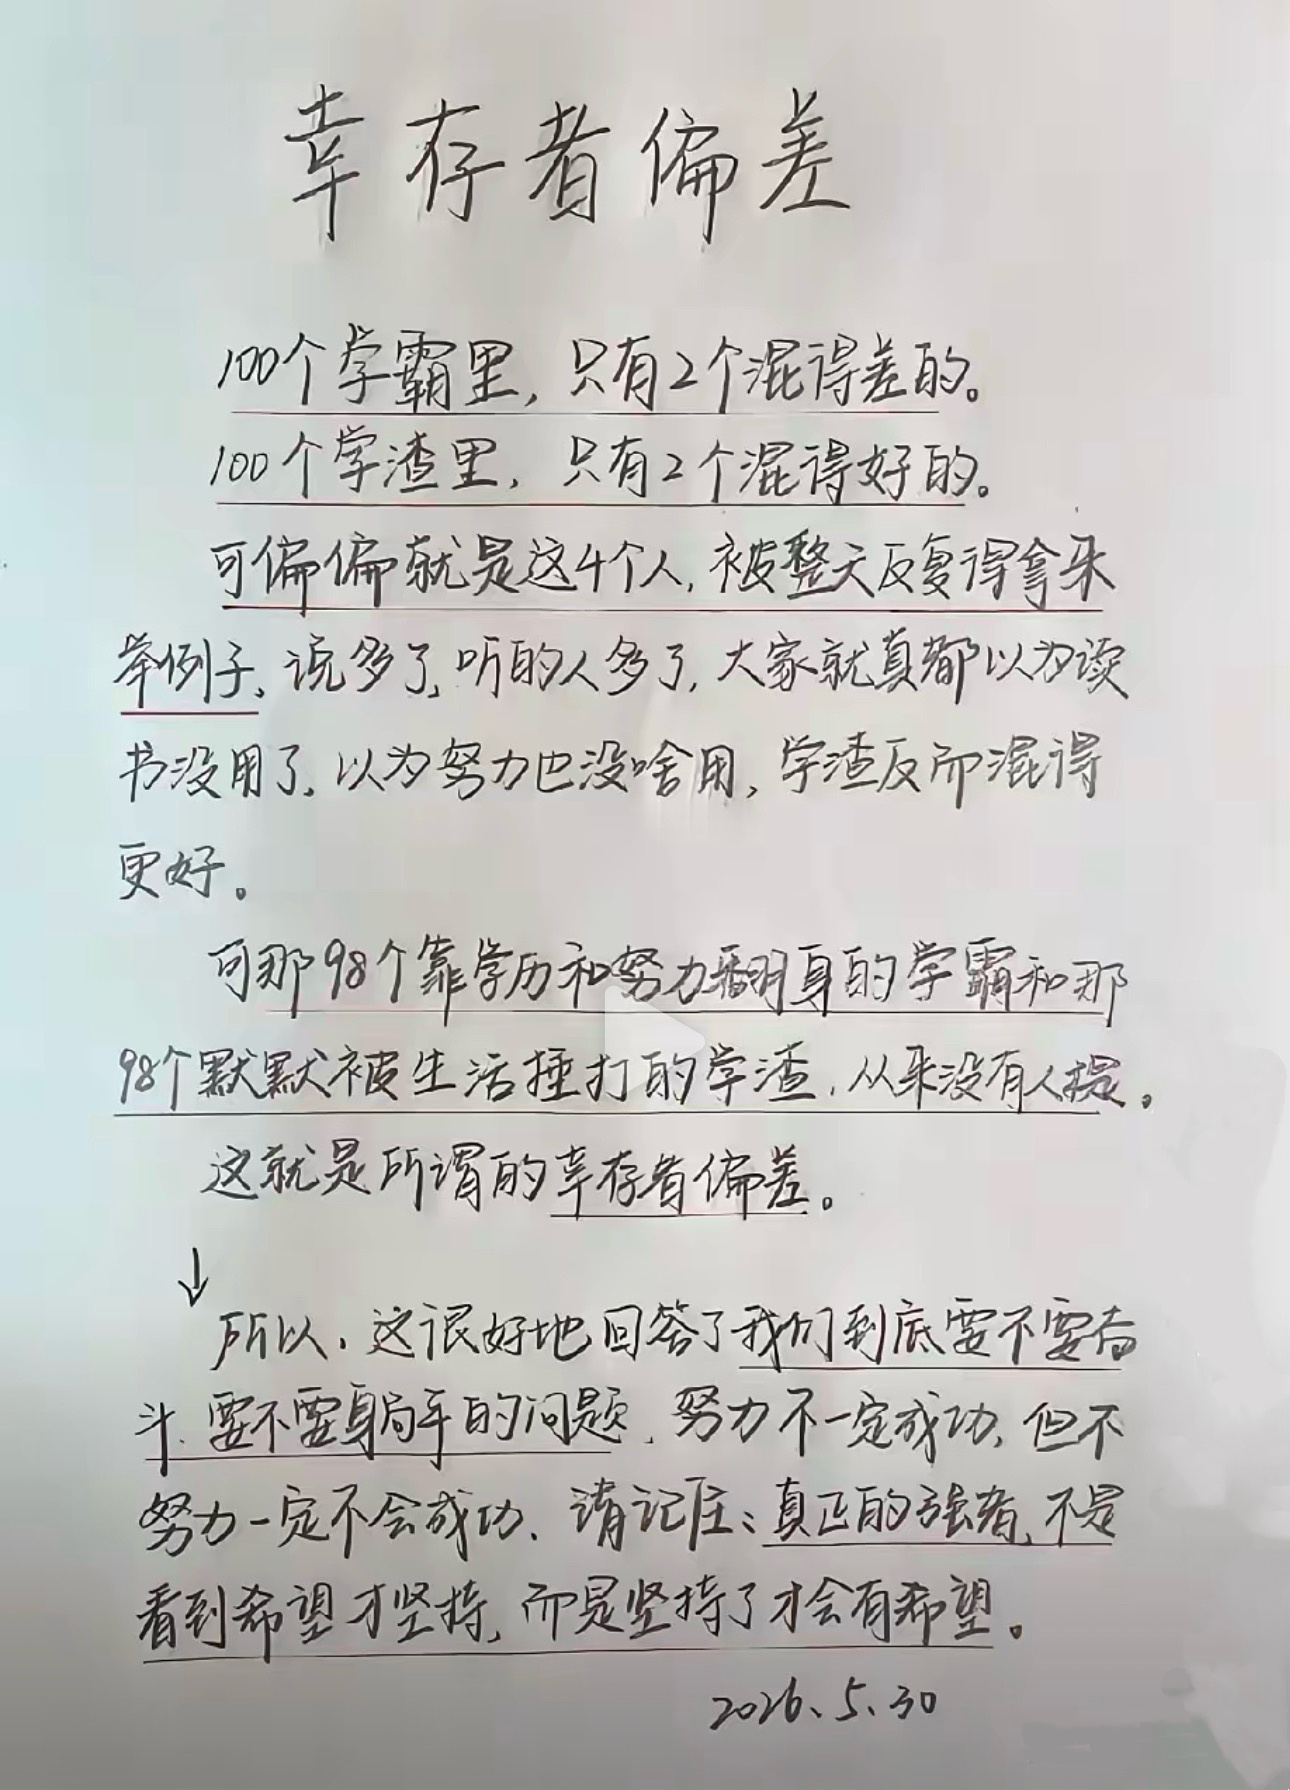 幸存者偏差
100个学霸里，只有2个混得差的。
100个学渣里，只有2个混得好的。
可偏偏就是这4个人，被整天反复得拿来
举例子、说多了，听的人多了，大家就真都以为读
书没用了，以为努力也没啥用，学渣反而混得
更好。
可那98个靠学历和努力翻身的学霸和那
98个默默被生活捶打的学渣，从来没有人提。
这就是所谓的幸存者偏差。
↓
所以，这很好地回答了我们到底要不要奋
斗、要不要躺平的问题，努力不一定成功，但不
努力一定不会成功，请记住：真正的强者，不是
看到希望才坚持，而是坚持了才会有希望。
2026、5、30